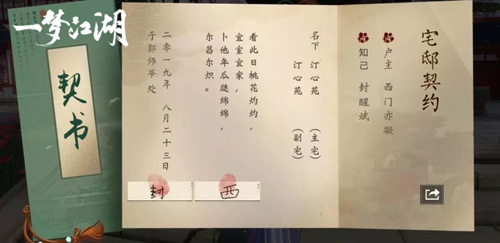 一梦江湖
契书
宅邸契约
户主 西门亦凝
知己 封醒斌
名下
汀心苑 (主宅)
汀心苑 (副宅)
看此日桃花灼灼，
宜室宜家，
卜他年瓜瓞绵绵，
尔昌尔炽。
二零一九年 八月二十三日
于郭师爷处
封
西